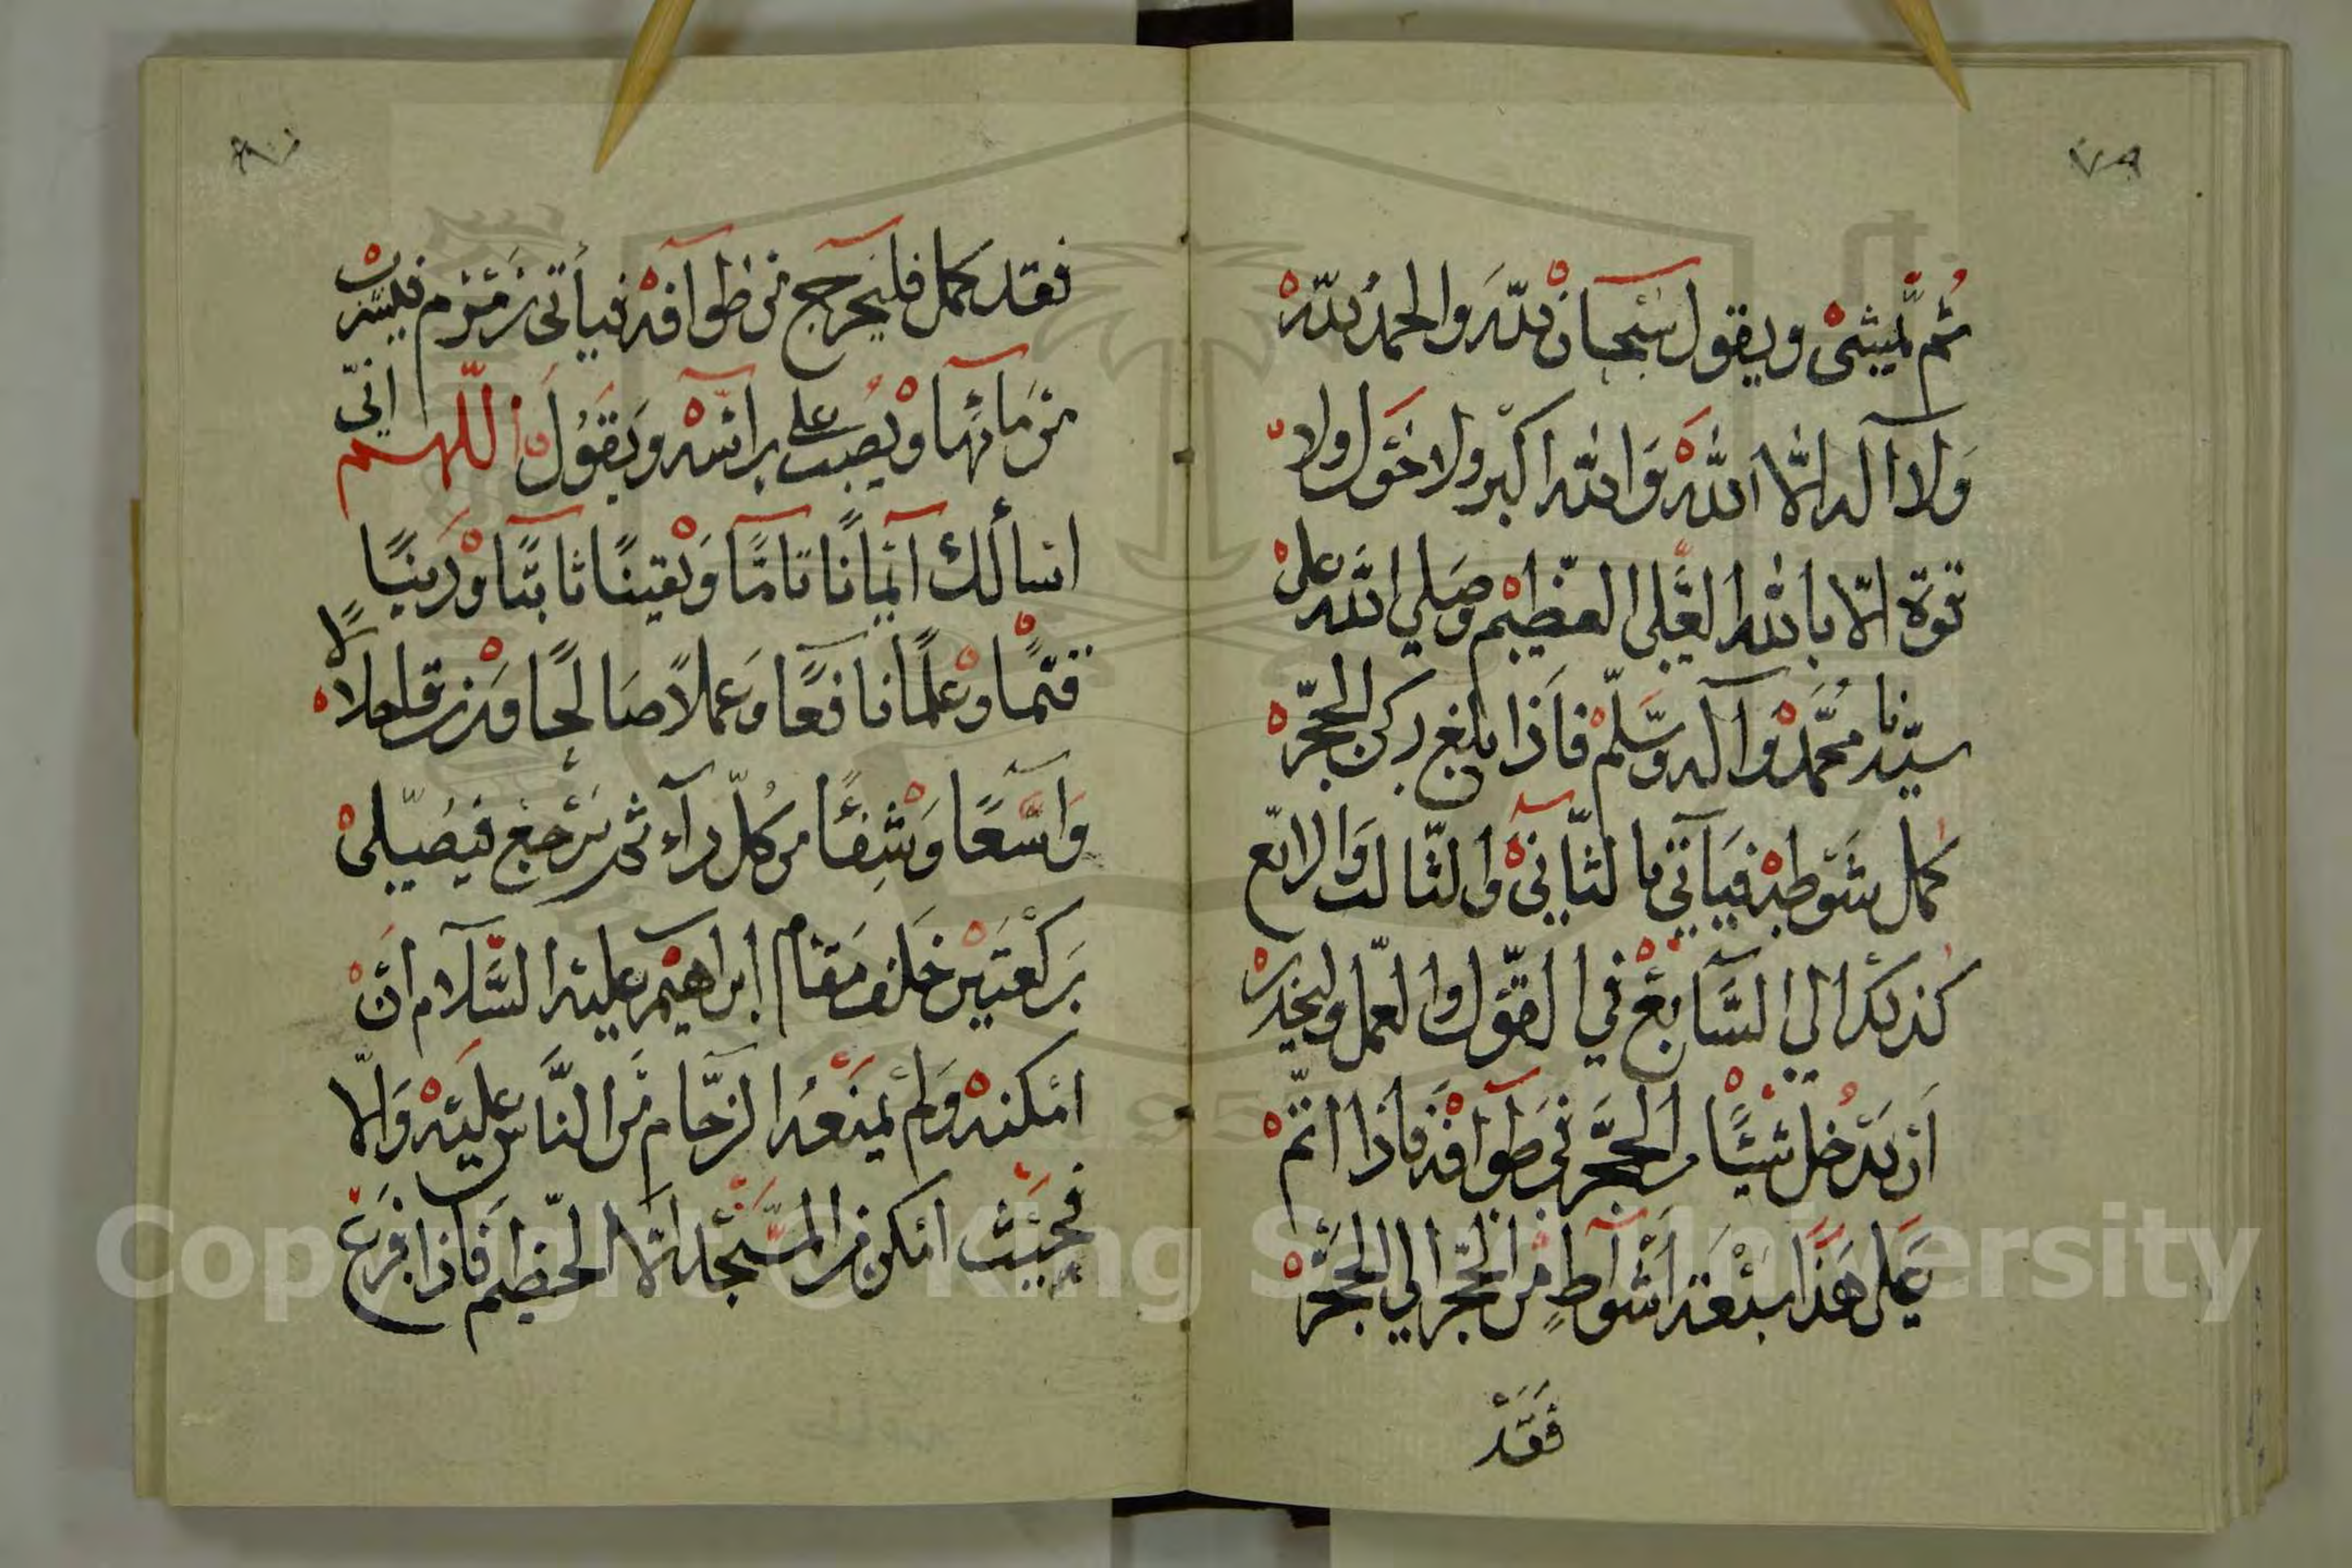 ٧٩
ثم يمشي ويقول سبحان الله والحمد لله
ولا اله الا الله والله اكبر ولا حول ولا
قوة الا بالله العلي العظيم وصلي الله علي
سيدنا محمد وآله وسلم فاذا بلغ ركن الحجر
كمل شوطه فيأتي بالثاني والثالث والرابع
كذلك الي السابع في القول والعمل وليحذر
ان يدخل شيئا من الحجر في طوافه فاذا اتم
عمل هذا سبعة اشواط من الحجر الي الحجر
فقد
٨٠
فقد كمل فليخرج من طوافه فيأتي زمزم فليشرب
من مائها ويصب علي راسه ويقول اللهم اني
اسألك ايمانا تاما ويقينا ثابتا ودينا
قيما وعلما نافعا وعملا صالحا ورزقا حلالا
واسعا وشفئا من كل داء ثم يرجع فيصلي
ركعتين خلف مقام ابراهيم عليه السلام ان
امكنه ولم يمنعه الزحام من الناس عليه والا
فحيث امكن من المسجد الا الحطيم فاذا فرغ
Copyright © King Saud University